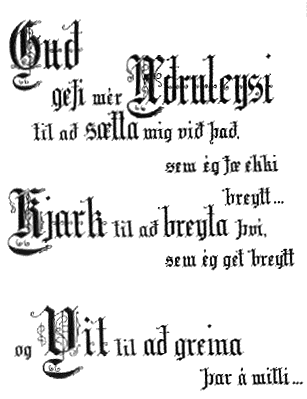 Guð
gefi mér Æðruleysi
til að sætta mig við það,
sem ég fæ ekki
breytt...
Kjark til að breyta því,
sem ég get breytt
og Vit til að greina
þar á milli...